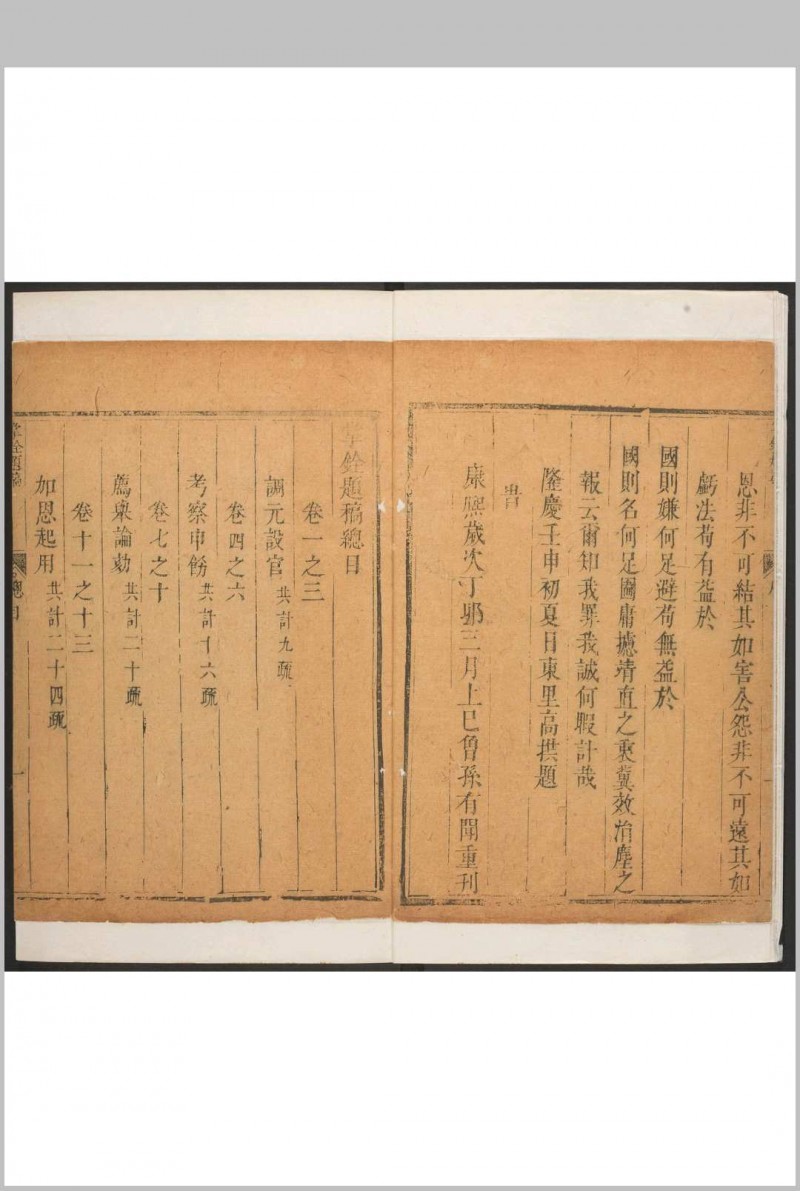 恩非不可結其如害公怨非不可遠其如
虧法苟有益於
國則嫌何足避苟無益於
國則名何足圖庸攄靖直之衷冀效涓塵之
報云爾知我罪我誠何暇計哉
隆慶壬申初夏日東里高拱題
旹
康熈歲次丁夘三月上巳曾孫有聞重刊
掌銓題稿總目
卷一之三
調元設官 共計九疏
卷四之六
考察申飭 共計十六疏
卷七之十
薦舉論劾 共計二十疏
卷十一之十三
加恩起用 共計二十四疏
掌銓題稿 總目